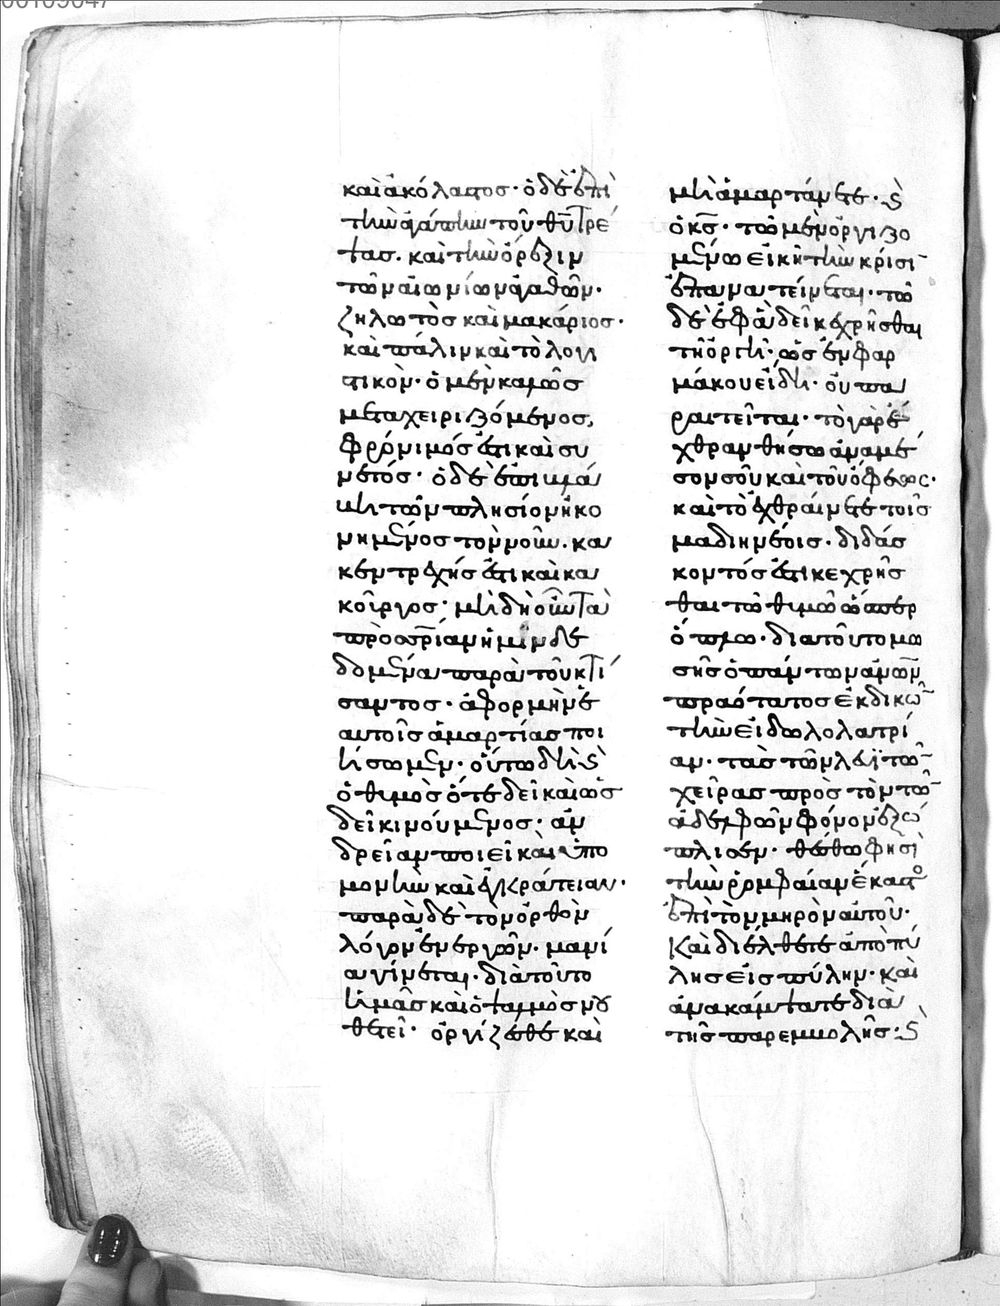 καὶ ἀκόλαστος· ὁ δὲ ἐπὶ
τὴν ἀγάπην τοῦ θῡ τρέ
ψας. καὶ τὴν ὄρεξιν
τῶν αἰωνίων ἀγαθῶν·
ζηλωτὸς καὶ μακάριος·
καὶ πάλιν καὶ τὸ λογι
στικὸν· ὁ μὲν καλῶς
μεταχειριζόμενος,
φρόνιμός ἐστι καὶ συ
νετός· ὁ δὲ ἐπὶ βλά
βῃ τῶν πλησίον ἠκο
νημένος τὸν νοῦν. κα
κεντρεχής ἐστι καὶ κα
κοῦργος· μὴ δὴ οὖν τὰ
πρὸς σρίαν ἡμῖν δε
δομένα παρὰ τοῦ κτί
σαντος· ἀφορμὴν ἑ
αυτοῖς ἁμαρτίας ποι
ήσωμεν· οὕτω δὴ ϗ
ὁ θυμὸς ὅτε δεῖ καὶ ὡς
δεῖ κινούμενος· ἀν
δρείαν ποιεῖ καὶ ὑπο
μονὴν καὶ ἐγκράτειαν·
παρὰ δὲ τὸν ὀρθὸν
λόγον ἐνεργῶν· μανί
α γίνεται· διὰ τοῦτο
ἡμᾶς καὶ ὁ ψαλμὸς νου
θετεῖ· ὀργίζεσθε καὶ
μὴ ἁμαρτάνετε· ϗ
ὁ κς̄· τῷ μὲν ὀργιζο
μένω εἰκῆ τὴν κρίσι
ἐπανατείνεται· τὸ
δὲ ἐφ' ἃ δεῖ κεχρῆσθαι
τῇ ὀργῇ· ὡς ἐν φαρ
μάκου εἴδη· οὐ πα
ραιτεῖται· τὸ γὰρ ἔ
χθραν θήσω ἀναμέ
σον σοῦ καὶ τοῦ ὄφεως·
καὶ τὸ ἐχθραίνετε τοῖς
μαδιηνέοις· διδάς
κοντός ἐστι κεχρῆς
θαι τῷ θυμῷ ὥσπερ
ὅπλω· διὰ τοῦτο μω
σῆς ὁ πάντων ἀνῶν
πραότατος ἐκδικῶ
τὴν εἰδωλολατρί
αν· τὰς τῶν λευϊτῶ
χεῖρας πρὸς τὸν τῶ
ἀδελφῶν φόνον ἐξώ
πλισεν· θέσθω φησὶ
τὴν ῥομφαίαν ἕκαστο
ἐπὶ τὸν μηρὸν αὐτοῦ·
καὶ διέλθετε ἀπὸ πύ
λης εἰς πύλην· καὶ
ἀνακάμψατε διὰ
τῆς παρεμβολῆς· ϗ